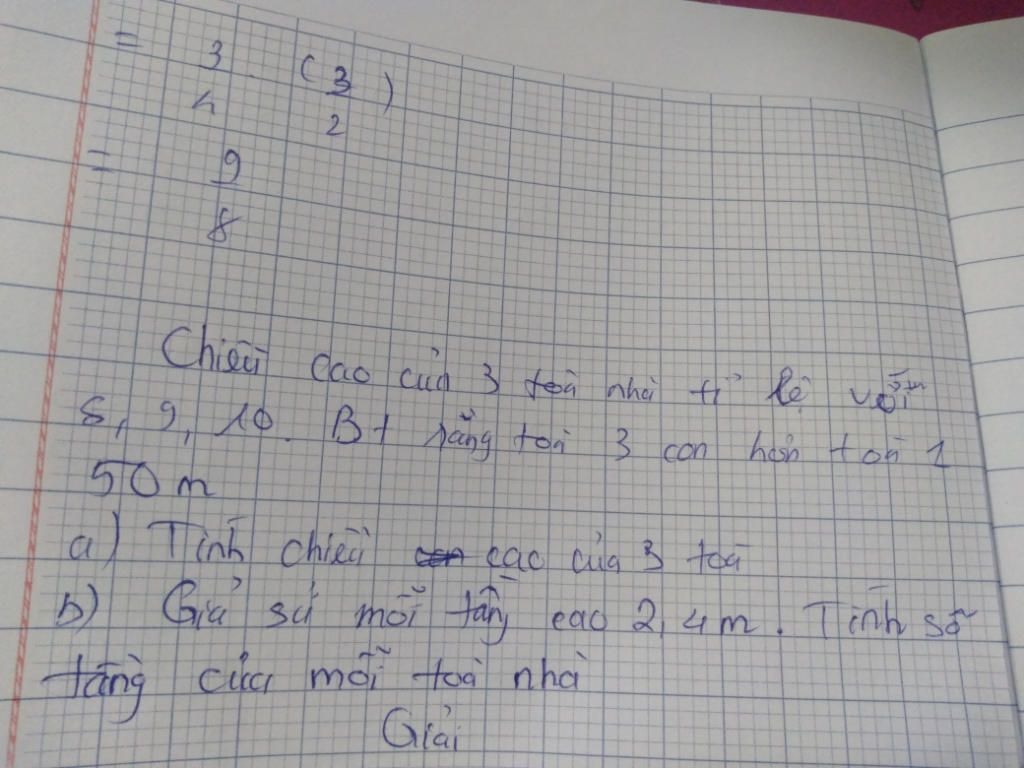 = 3 . ( 3 )
4 2
= 9
8
Chiều cao của 3 toà nhà tỉ lệ với
8, 9, 10. Bt rằng toà 3 con hơn toà 1
50 m
a) Tính chiều cao của 3 toà
b) Giả sử mỗi tầng cao 2,4m. Tính số
tầng của mỗi toà nhà
Giải